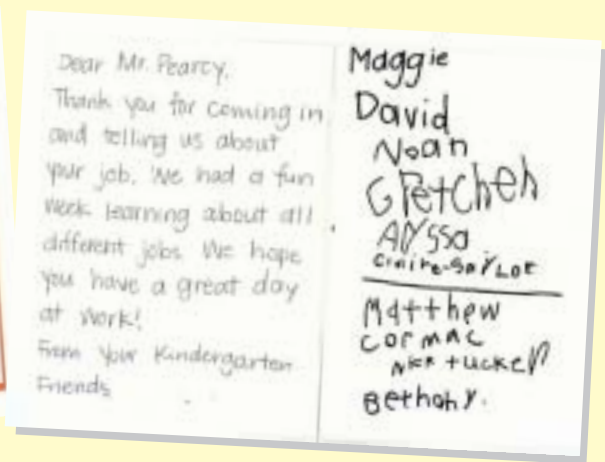 Dear Mr. Pearcy,
Thank you for coming in
and telling us about
your job. We had a fun
week learning about all
different jobs. We hope
you have a great day
at work!
From your Kindergarten
Friends
Maggie
David
Noah
Gretchen
Alyssa
Claire
Matthew
Cormac
Nick Tucker
Bethany.